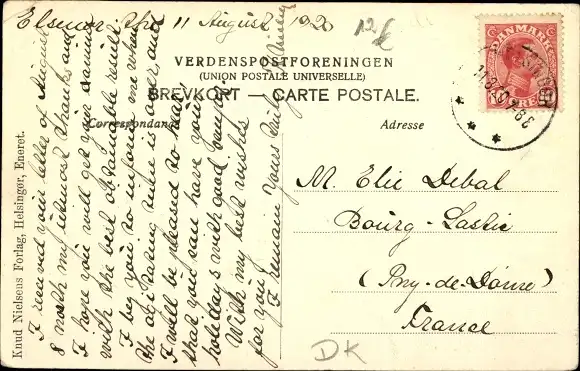 Elsinore, the 11 August 1920
12
VERDENSPOSTFORENINGEN
(UNION POSTALE UNIVERSELLE)
BREVKORT — CARTE POSTALE.
Correspondance
Adresse
DANMARK
ØRE
I received your letter of August
8 with my utmost thanks and
I hope you will get your exams
with the best obtainable result
I beg you to inform me when
the agitating time is over, and
I will be pleased to hear
that you can have your
holidays with good
With my best wishes
for you
I remain Yours truly
M. Elie Debal
Bourg-Lastic
(Puy-de-Dôme)
France
DK
Knud Nielsens Forlag, Helsingør, Eneret.